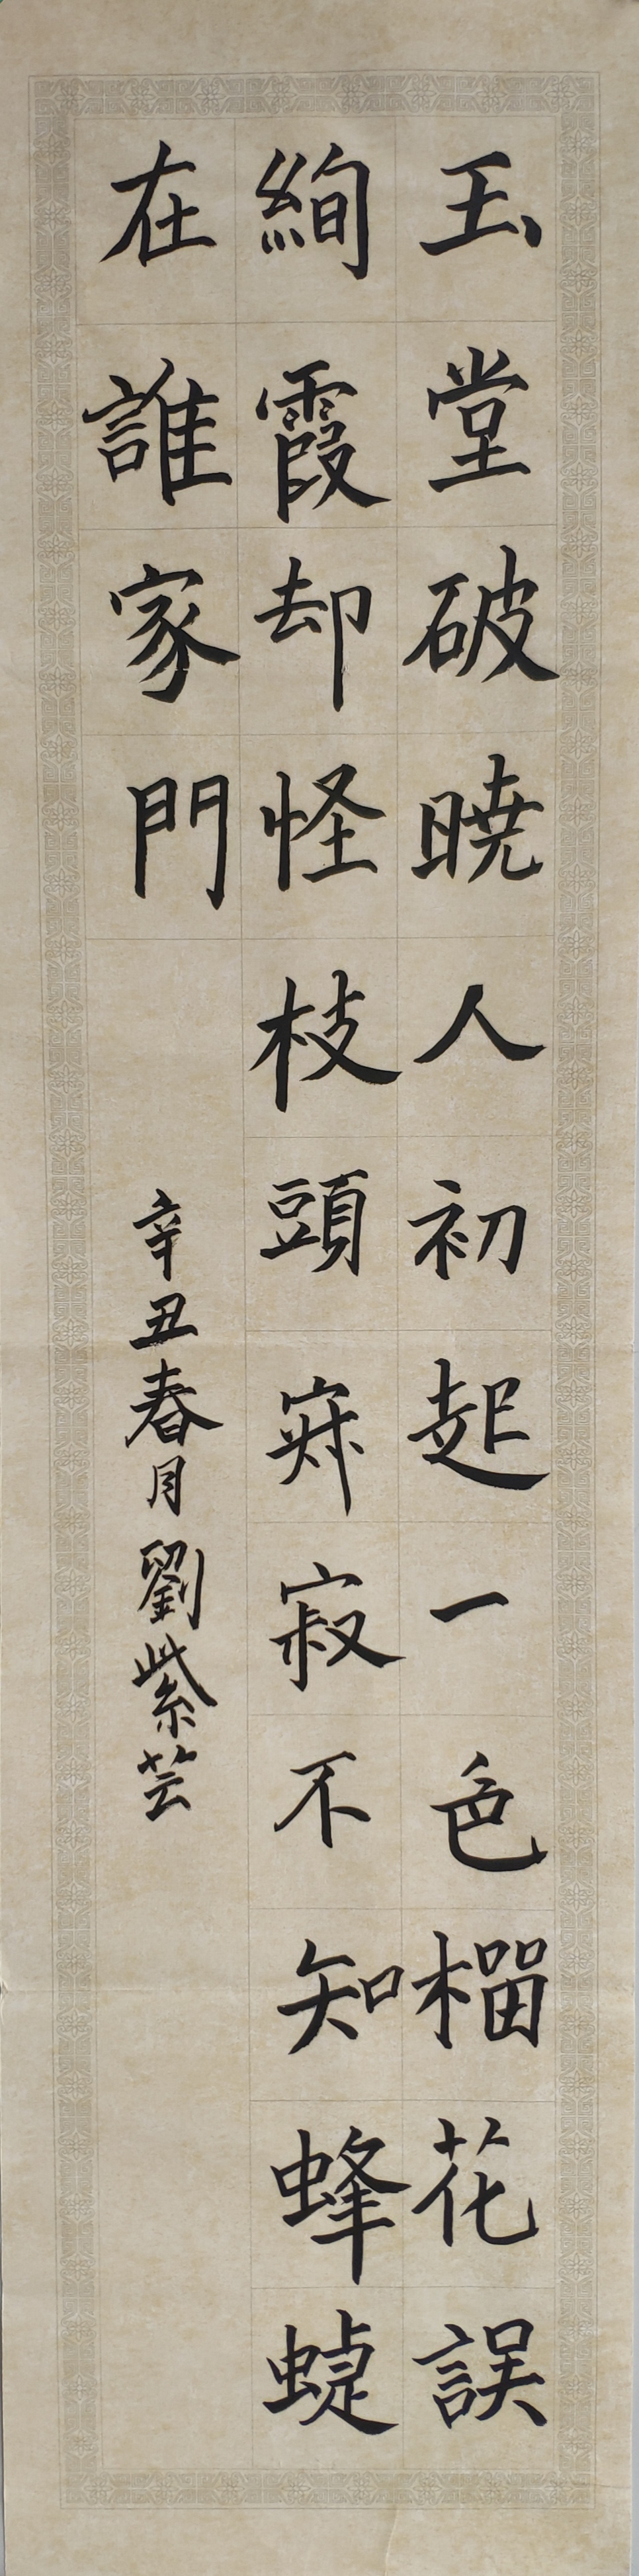 玉堂破曉人初起一色榴花誤
絢霞却怪枝頭寂寂不知蜂蜨
在誰家門
辛丑春月劉紫芸